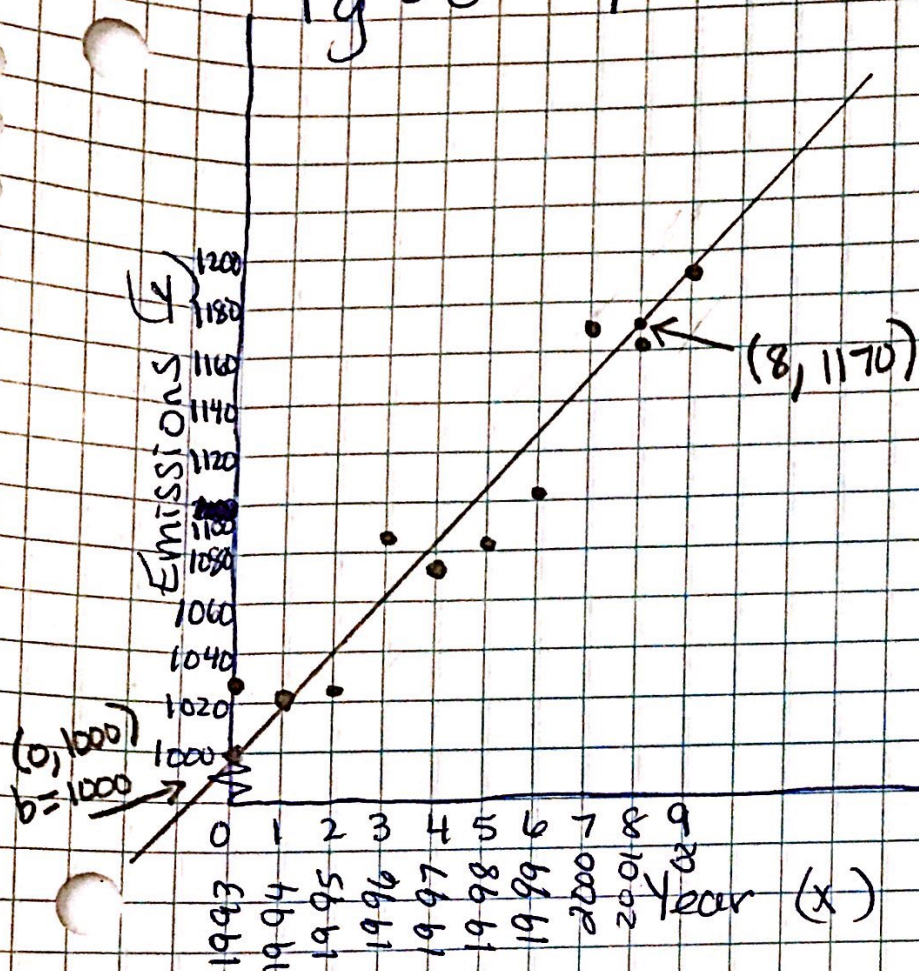 Emissions (y)
1200
1180
1160
1140
1120
1100
1080
1060
1040
1020
1000
(8, 1170)
(0, 1000)
b=1000
0 1 2 3 4 5 6 7 8 9
1993 1994 1995 1996 1997 1998 1999 2000 2001 02
Year (x)